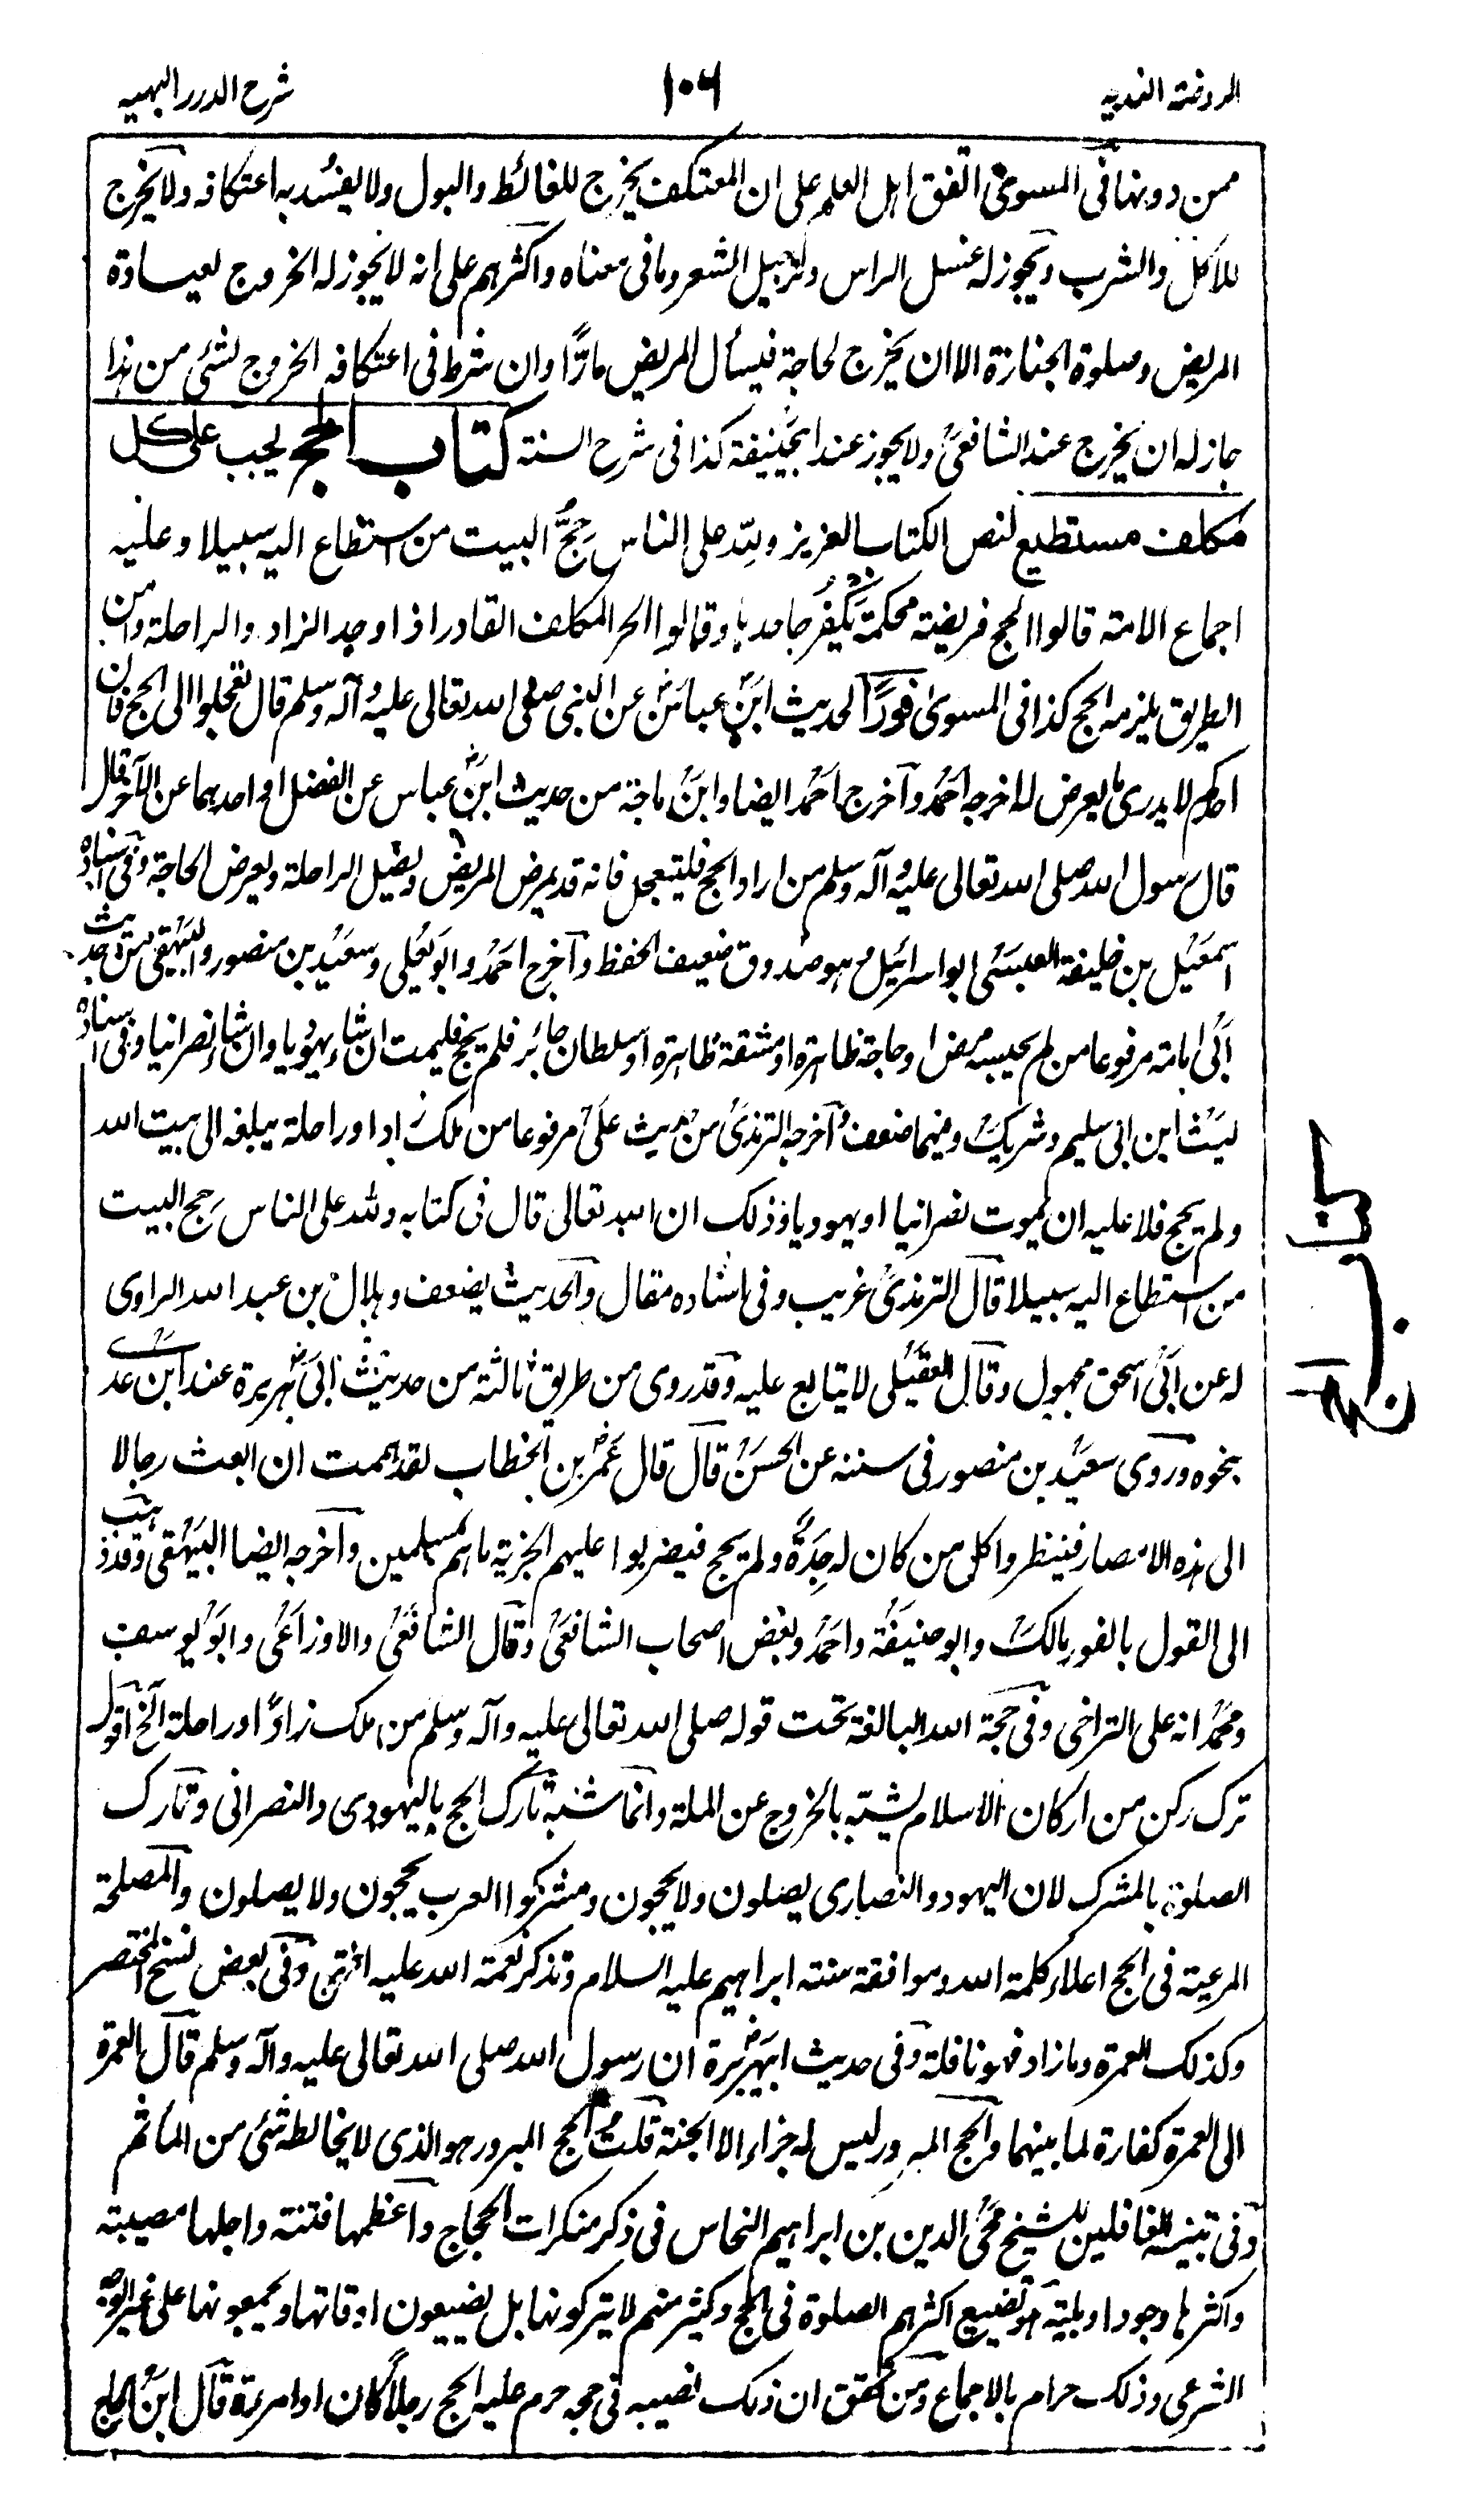 الروضة الندية
١٠٦
شرح الدرر البهية
ممن دونها في المسوى اتفق اهل العلم على ان المعتكف يخرج للغائط والبول ولا يفسد به اعتكافه ولا يخرج
للاكل والشرب ويجوز له غسل الراس وترجيل الشعر وما في معناه واكثرهم على انه لا يجوز له الخروج لعيادة
المريض وصلوة الجنازة الا ان يخرج لحاجة فيسأل المريض مارًّا وان شرط في اعتكافه الخروج لشئ من هذا
جاز له ان يخرج عند الشافعي ولا يجوز عند ابيحنيفة كذا في شرح السنة كتاب الحج يجب على كل
مكلف مستطيع لنص الكتاب العزيز ولله على الناس حج البيت من استطاع اليه سبيلا وعليه
اجماع الامة قالوا الحج فريضة محكمة يكفر جاحدها وقالوا الحر المكلف القادر اذا وجد الزاد والراحلة وامن
الطريق يلزمه الحج كذا في المسوى فورًا لحديث ابن عباس عن النبي صلى الله تعالى عليه وآله وسلم قال تعجلوا الى الحج فان
احدكم لا يدري ما يعرض له اخرجه احمد وآخرج احمد ايضا وابن ماجة من حديث ابن عباس عن الفضل او احدهما عن الآخر قال
قال رسول الله صلى الله تعالى عليه وآله وسلم من اراد الحج فليتعجل فانه قد يمرض المريض وتضل الراحلة وتعرض الحاجة وفي اسناده
اسمعيل بن خليفة العبسي ابو اسرائيل وهو صدوق ضعيف الحفظ وآخرج احمد وابو يعلى وسعيد بن منصور والبيهقي من حديث
ابي امامة مرفوعا من لم يحبسه مرض او حاجة ظاهرة او مشقة ظاهرة او سلطان جائر فلم يحج فليمت ان شاء يهوديا وان شاء نصرانيا وفي اسناده
ليث ابن ابي سليم وشريك وفيهما ضعف وآخرجه الترمذي من حديث علي مرفوعا من ملك زادا وراحلة تبلغه الى بيت الله
ولم يحج فلا عليه ان يموت نصرانيا او يهوديا وذلك ان الله تعالى قال في كتابه ولله على الناس حج البيت
من استطاع اليه سبيلا قال الترمذي غريب وفي اسناده مقال والحديث يضعف وهلال بن عبد الله الراوي
له عن ابي اسحق مجهول وقال العقيلي لا يتابع عليه وقد روى من طريق ثالثة من حديث ابي هريرة عند ابن عدي
بنحوه وروى سعيد بن منصور في سننه عن الحسن قال قال عمر بن الخطاب لقد هممت ان ابعث رجالا
الى هذه الامصار فينظروا كل من كان له جِدَةٌ ولم يحج فيضربوا عليهم الجزية ما هم بمسلمين وآخرجه ايضا البيهقي وقد ذهب
الى القول بالفور مالك وابو حنيفة واحمد وبعض اصحاب الشافعي وقال الشافعي والاوزاعي وابو يوسف
ومحمد انه على التراخي وفي حجة الله البالغة تحت قوله صلى الله تعالى عليه وآله وسلم من ملك زادًا وراحلة الخ اقول
ترك ركن من اركان الاسلام يشبه بالخروج عن الملة وانما شبه تارك الحج باليهودي والنصراني وتارك
الصلوة بالمشرك لان اليهود والنصارى يصلون ولا يحجون ومشركوا العرب يحجون ولا يصلون والمصلحة
المرعية في الحج اعلاء كلمة الله وموافقة سنة ابراهيم عليه السلام وتذكر نعمة الله عليه انتهى وفي بعض نسخ المختصر
وكذلك العمرة وما زاد فهو نافلة وفي حديث ابيهريرة ان رسول الله صلى الله تعالى عليه وآله وسلم قال العمرة
الى العمرة كفارة لما بينهما والحج المبرور ليس له جزاء الا الجنة قلت الحج المبرور هو الذي لا يخالطه شئ من المآثم
وفي تنبيه الغافلين للشيخ محي الدين بن ابراهيم النحاس في ذكر منكرات الحجاج واعظمها فتنة واجلها مصيبة
واكثرها وجودا وبلية هو تضييع اكثرهم الصلوة في الحج وكثير منهم لا يتركونها بل يضيعون اوقاتها ويجمعونها على غير الوجه
الشرعي وذلك حرام بالاجماع ومن تحقق ان ذلك نصيبه في حجه حرم عليه الحج رجلاً كان او امرءة قال ابن الحاج